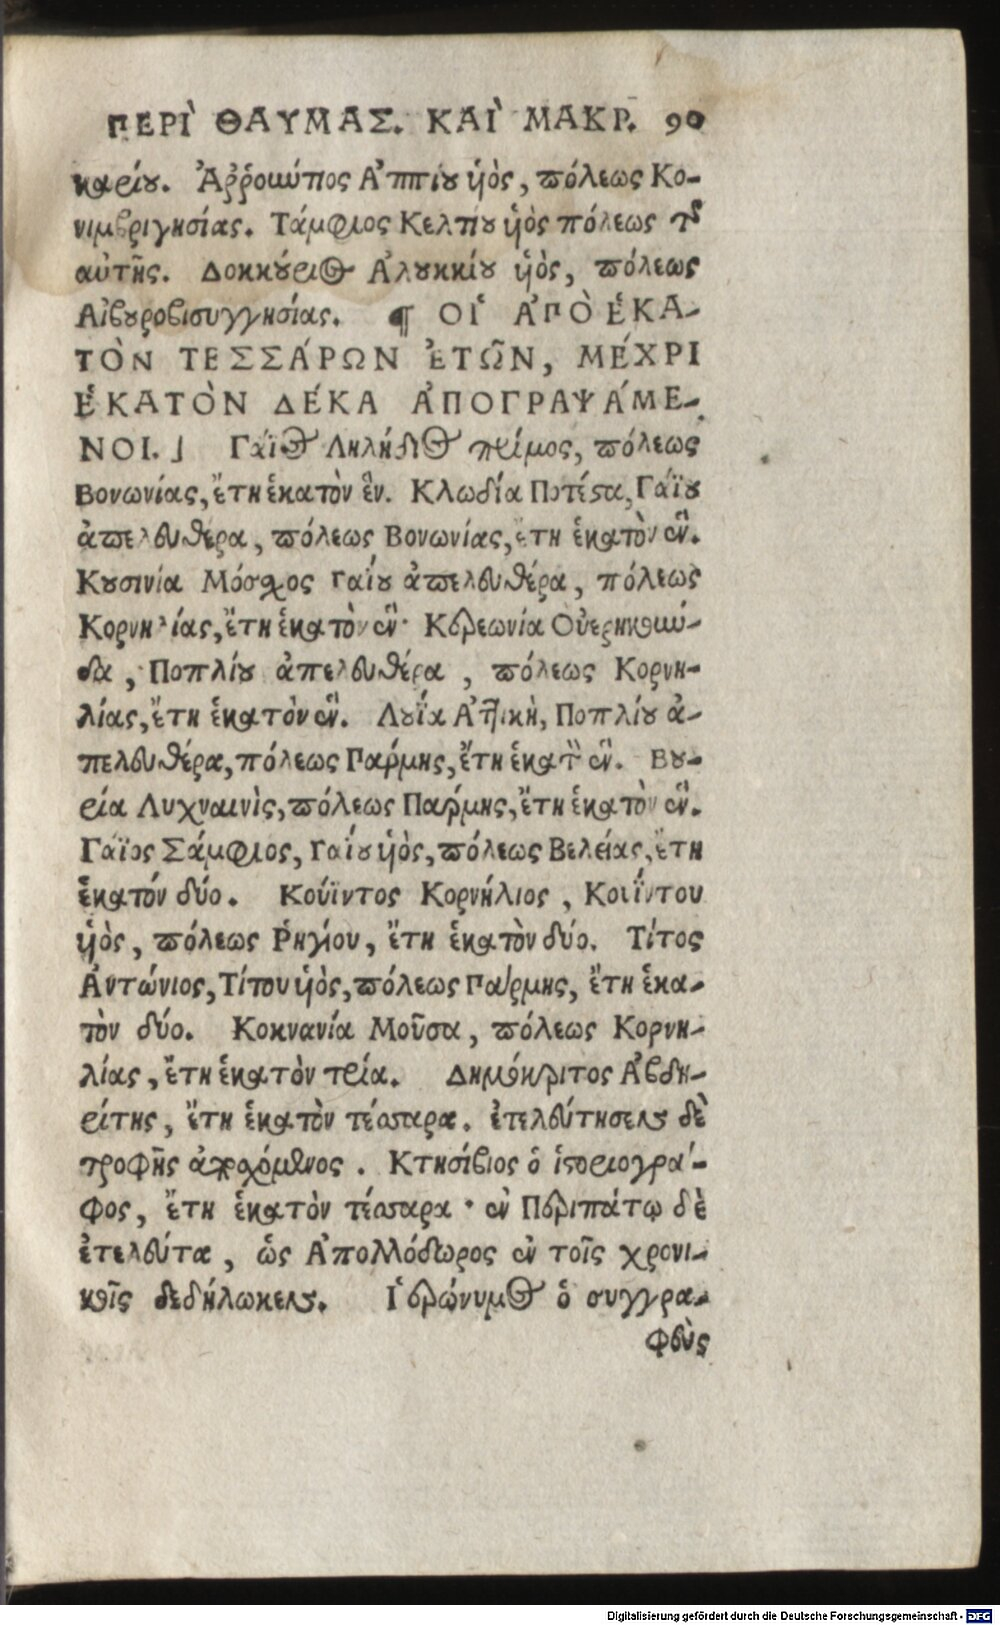 ΠΕΡΙ` ΘΑΥΜΑΣ. ΚΑΙ` ΜΑΚΡ. 90
καρίου. Ἀῤῥοκύπος Ἀππίου ὑὸς, πόλεως Κο-
νιμβριγησίας. Τάμφιος Κελτίου ὑὸς πόλεως τῆς
αὐτῆς. Δοκκούριος Ἀλουκκίου ὑὸς, πόλεως
Αἰβουροβισυγγησίας. ¶ ΟΙ῾ ἈΠῸ ἙΚΑ-
ΤῸΝ ΤΕΣΣΆΡΩΝ ἘΤΩ͂Ν, ΜΈΧΡΙ
ἙΚΑΤῸΝ ΔΈΚΑ ἈΠΟΓΡΑΨΆΜΕ-
ΝΟΙ.⌋ Γάϊος Λητήδιος πρίμος, πόλεως
Βονωνίας, ἔτη ἑκατὸν ἓν. Κλωδία Ποτέστα, Γαΐου
ἀπελευθέρα, πόλεως Βονωνίας, ἔτη ἑκατὸν ἓν.
Κουσινία Μόσχος Γαΐου ἀπελευθέρα, πόλεως
Κορνηλίας, ἔτη ἑκατὸν ἓν· Κερεωνία Οὐερηκούν-
δα, Ποπλίου ἀπελευθέρα, πόλεως Κορνη-
λίας, ἔτη ἑκατὸν ἓν. Λουΐα Ἀττικὴ, Ποπλίου ἀ-
πελευθέρα, πόλεως Πάρμης, ἔτη ἑκατὸν ἓν. Βου-
ρία Λυχναινὶς, πόλεως Πάρμης, ἔτη ἑκατὸν ἓν.
Γάϊος Σάμφιος, Γαΐου ὑὸς, πόλεως Βελείας, ἔτη
ἑκατόν δύο. Κούϊντος Κορνήλιος, Κοιΐντου
ὑὸς, πόλεως Ῥηγίου, ἔτη ἑκατὸν δύο. Τίτος
Ἀντώνιος, Τίτου ὑὸς, πόλεως Πάρμης, ἔτη ἑκα-
τὸν δύο. Κοκνανία Μοῦσα, πόλεως Κορνη-
λίας, ἔτη ἑκατὸν τρία. Δημόκριτος Ἀβδη-
ρίτης, ἔτη ἑκατὸν τέσσαρα. ἐτελεύτησεν δὲ
τροφῆς ἀπεχόμενος. Κτησίβιος ὁ ἱστοριογρά-
φος, ἔτη ἑκατὸν τέσσαρα· ἐν Περιπάτῳ δὲ
ἐτελεύτα, ὡς Ἀπολλόδωρος ἐν τοῖς χρονι-
κοῖς δεδήλωκεν. Ἱερώνυμος ὁ συγγρα-
φεὺς
Digitalisierung gefördert durch die Deutsche Forschungsgemeinschaft - DFG